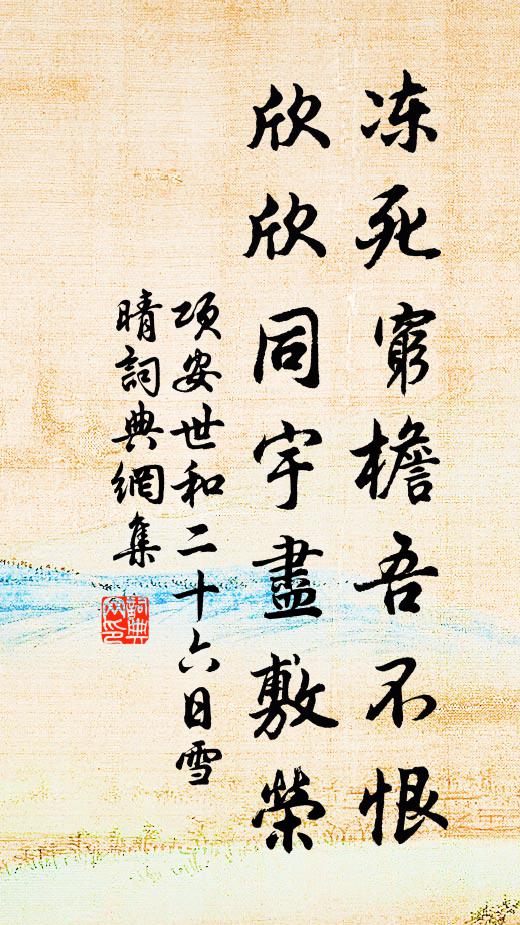 冻死窮檐吾不恨
欣欣同宇盡敷榮
项安世和二十六日雪
晴詞典網集
詞典